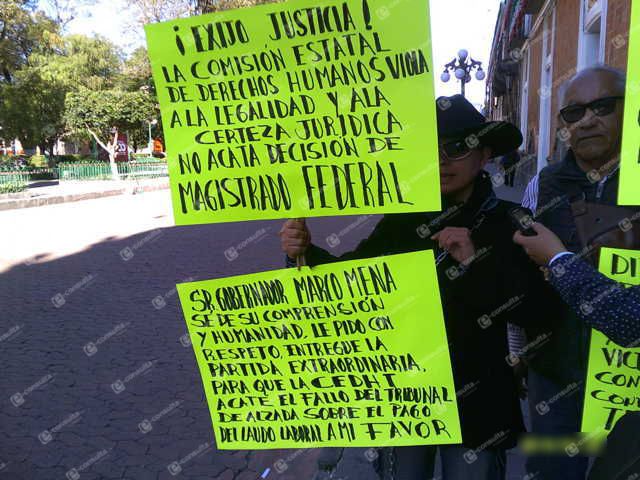 ¡EXIJO JUSTICIA!
LA COMISIÓN ESTATAL
DE DERECHOS HUMANOS VIOLA
A LA LEGALIDAD Y A LA
CERTEZA JURIDICA
NO ACATA DECISIÓN DE
MAGISTRADO FEDERAL
SR. GOBERNADOR MARCO MENA
SÉ DE SU COMPRENSIÓN
Y HUMANIDAD, LE PIDO CON
RESPETO, ENTREGUE LA
PARTIDA EXTRAORDINARIA,
PARA QUE LA CEDHT
ACATE EL FALLO DEL TRIBUNAL
DE ALZADA SOBRE EL PAGO
DEL LAUDO LABORAL A MI FAVOR
e-consulta